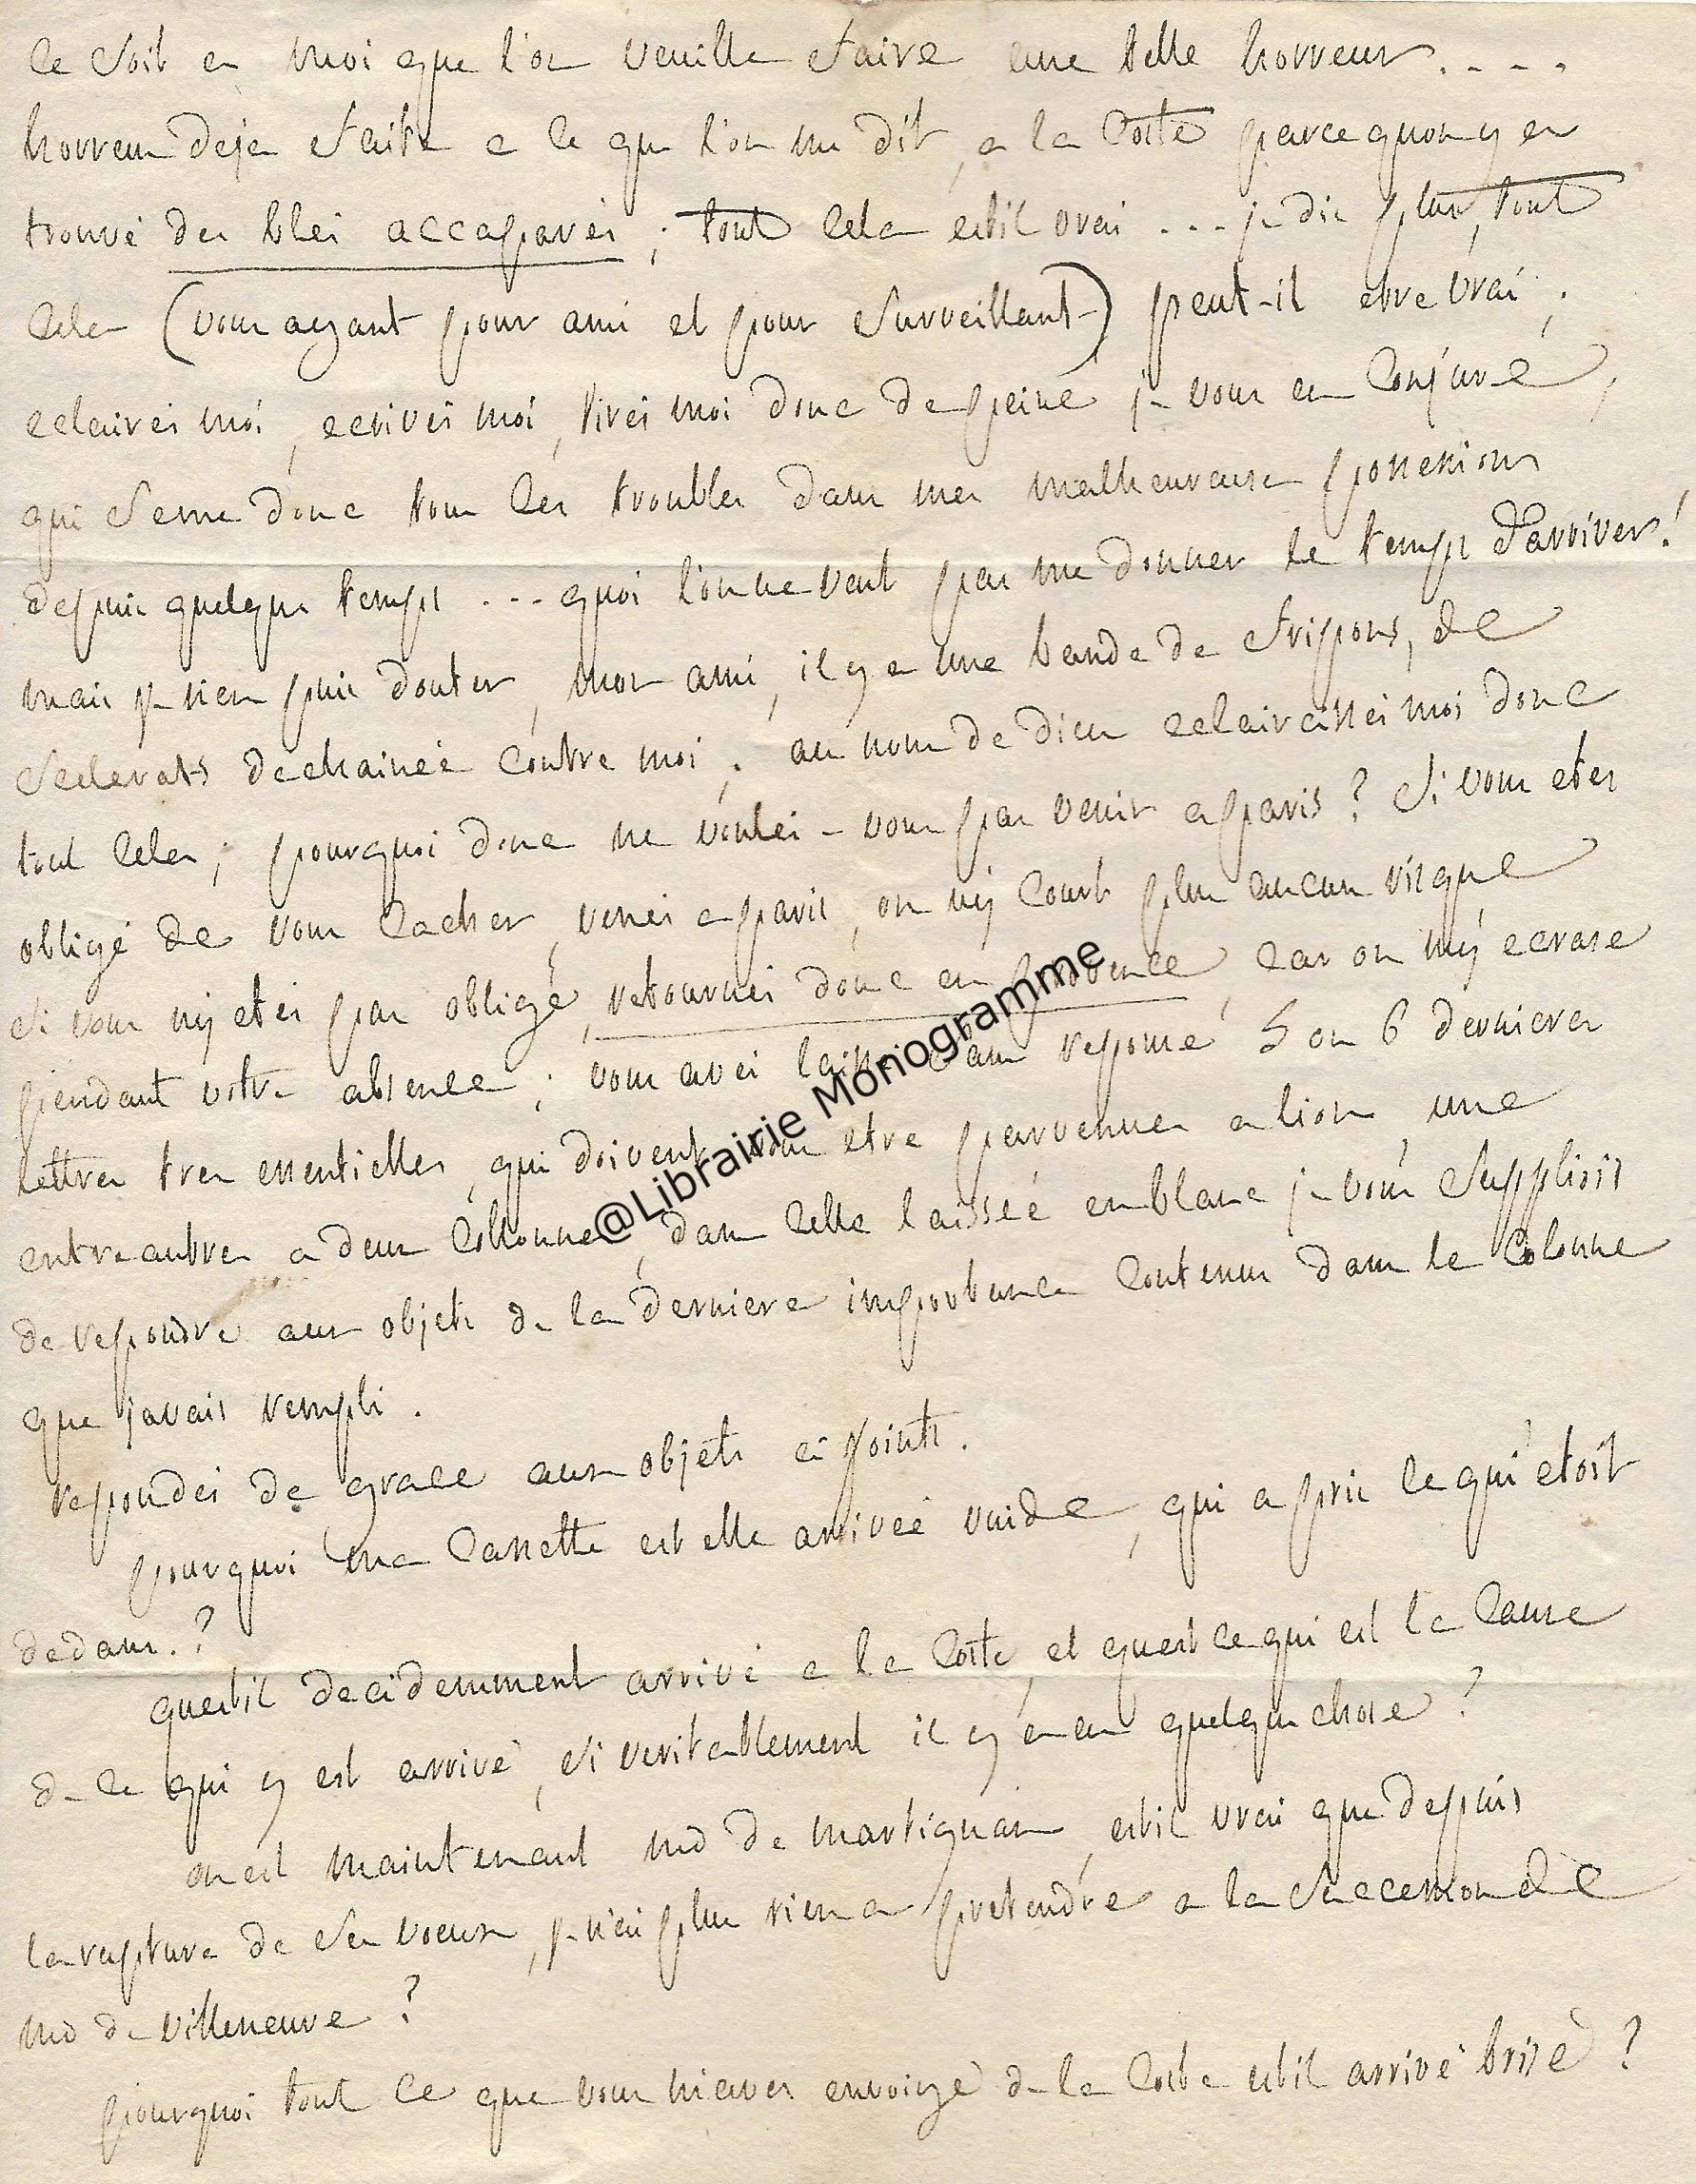 ce soit a moi que l'on veuille faire une telle horreur....
horreur deja faite a ce que l'on me dit, a la Coste parce quon y a
trouvé des blés accaparés; tout cela estil vrai ... je dis plus, tout
cela (vous ayant pour ami et pour surveillant) peut-il etre vrai;
eclairés moi, ecrivés moi, tirés moi donc de peine je vous en conjure,
qui seme donc tous les troubles dans mes malheureuses possessions
depuis quelque temps ... quoi l'on ne veut pas me donner le temps d'arriver!
mais je nen puis douter, mon ami, il y a une bande de fripons, de
scelerats dechainée contre moi; au nom de dieu eclaircissés moi donc
tout cela; pourquoi donc ne voulés-vous pas venir a paris? si vous etes
obligé de vous cacher, venés a paris, on ny court plus aucun risque
si vous ny etes pas obligé, retournés donc en provence, car on my ecrase
pendant votre absence; vous avés laissé sans reponse 5 ou 6 dernieres
lettres tres essentielles, qui doivent vous etre parvenues a lion une
entre autres a deux collonnes, dans celle laissée en blanc je vous suppliois
de repondre aux objets de la derniere importance contenus dans la colonne
que j'avais rempli.
repondés de grace aux objets ci joints.
pourquoi ma cassette est elle arrivée vuide, qui a pris ce qui etoit
dedans.?
questil decidemment arrivé a la Coste, et quest ce qui est la cause
de ce qui y est arrivé, si veritablement il y a eu quelque chose?
ou est maintenant md de martignan, estil vrai que depuis
la rupture de ses voeux, je n'ai plus rien a pretendre a la succession de
md de villeneuve?
pourquoi tout ce que vous m'aves envoiyé de la Coste estil arrivé brisé?
@Librairie Monogramme